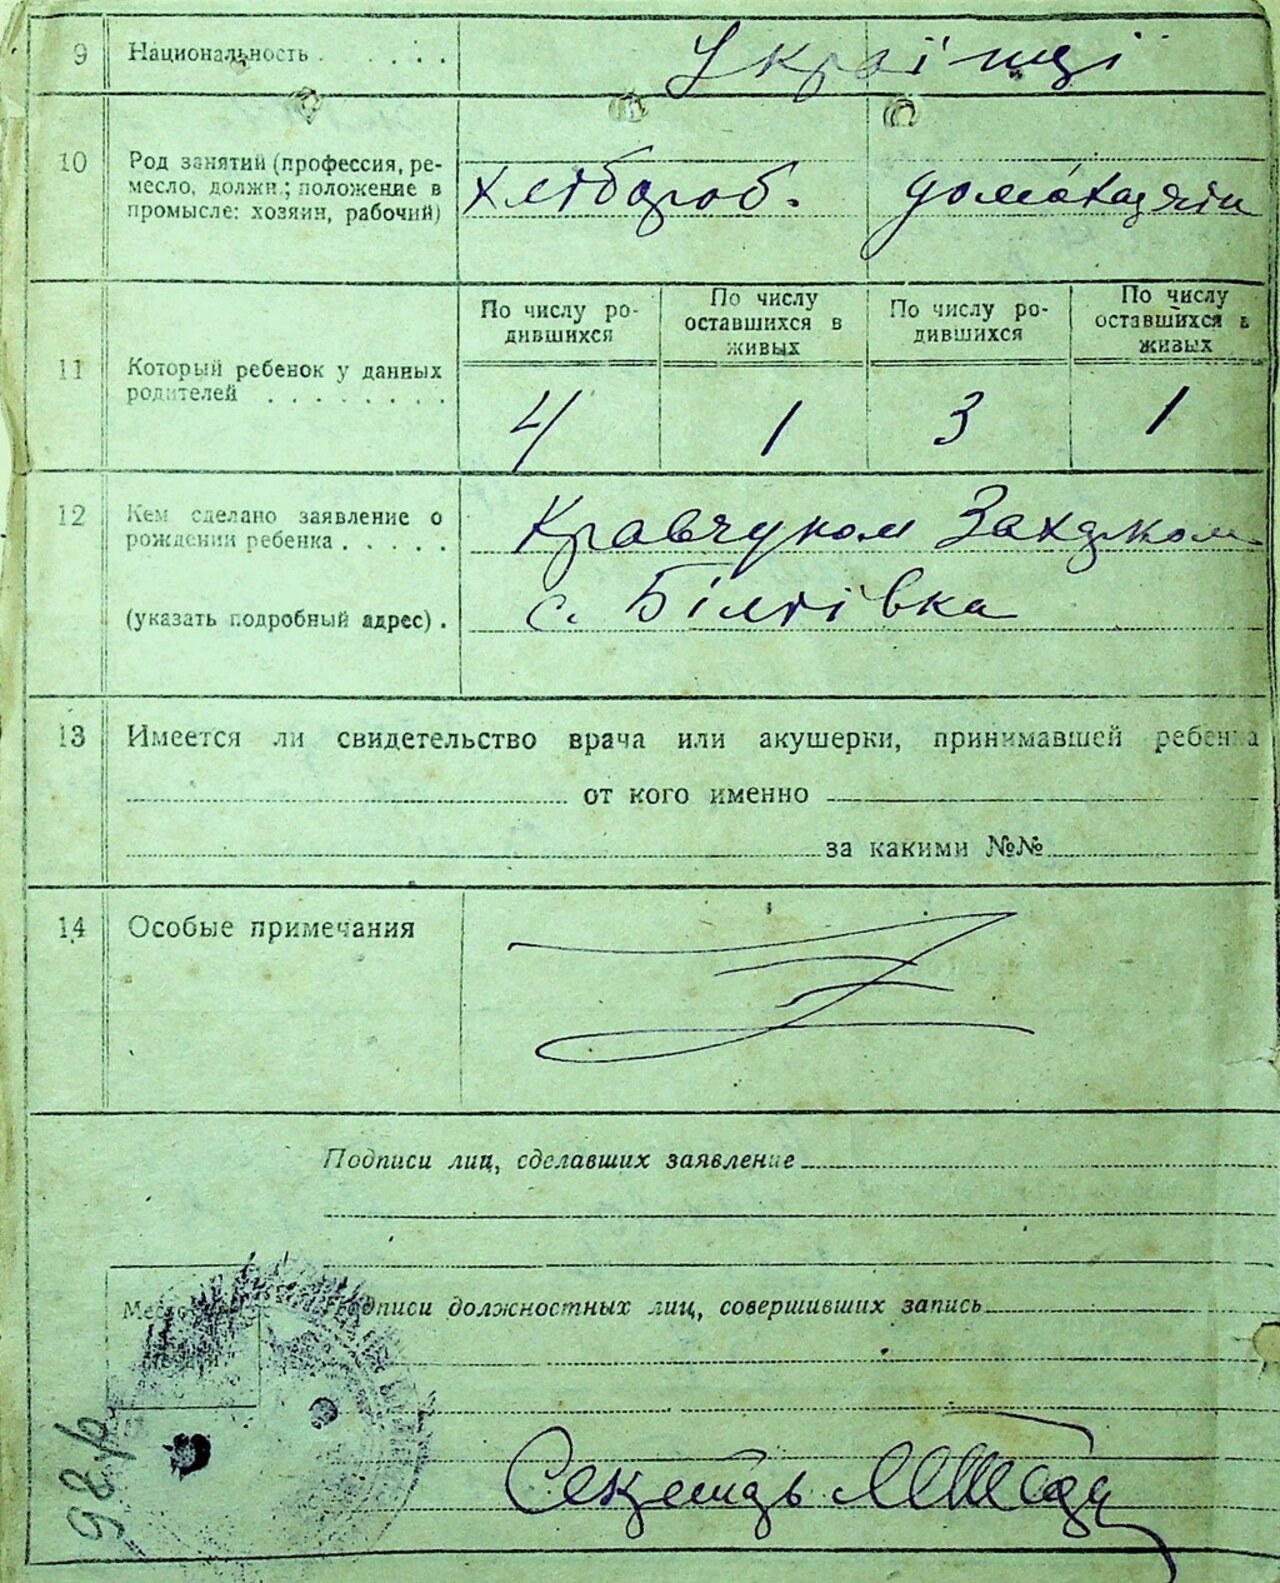 9 Национальность . . . . . . Українці
10 Род занятий (профессия, ре-
месло, должн.; положение в
промысле: хозяин, рабочий)
Хлібороб.
11 Который ребенок у данных
родителей . . . . . . . .
По числу ро-
дившихся
По числу
оставшихся в
живых
По числу ро-
дившихся
По числу
оставшихся в
живых
4 1 3 1
12 Кем сделано заявление о
рождении ребенка . . . . .
(указать подробный адрес) .
Кравчуком
с. Білтівка
13 Имеется ли свидетельство врача или акушерки, принимавшей ребенка
от кого именно
за какими №№
14 Особые примечания
Подписи лиц, сделавших заявление
Подписи должностных лиц, совершивших запись